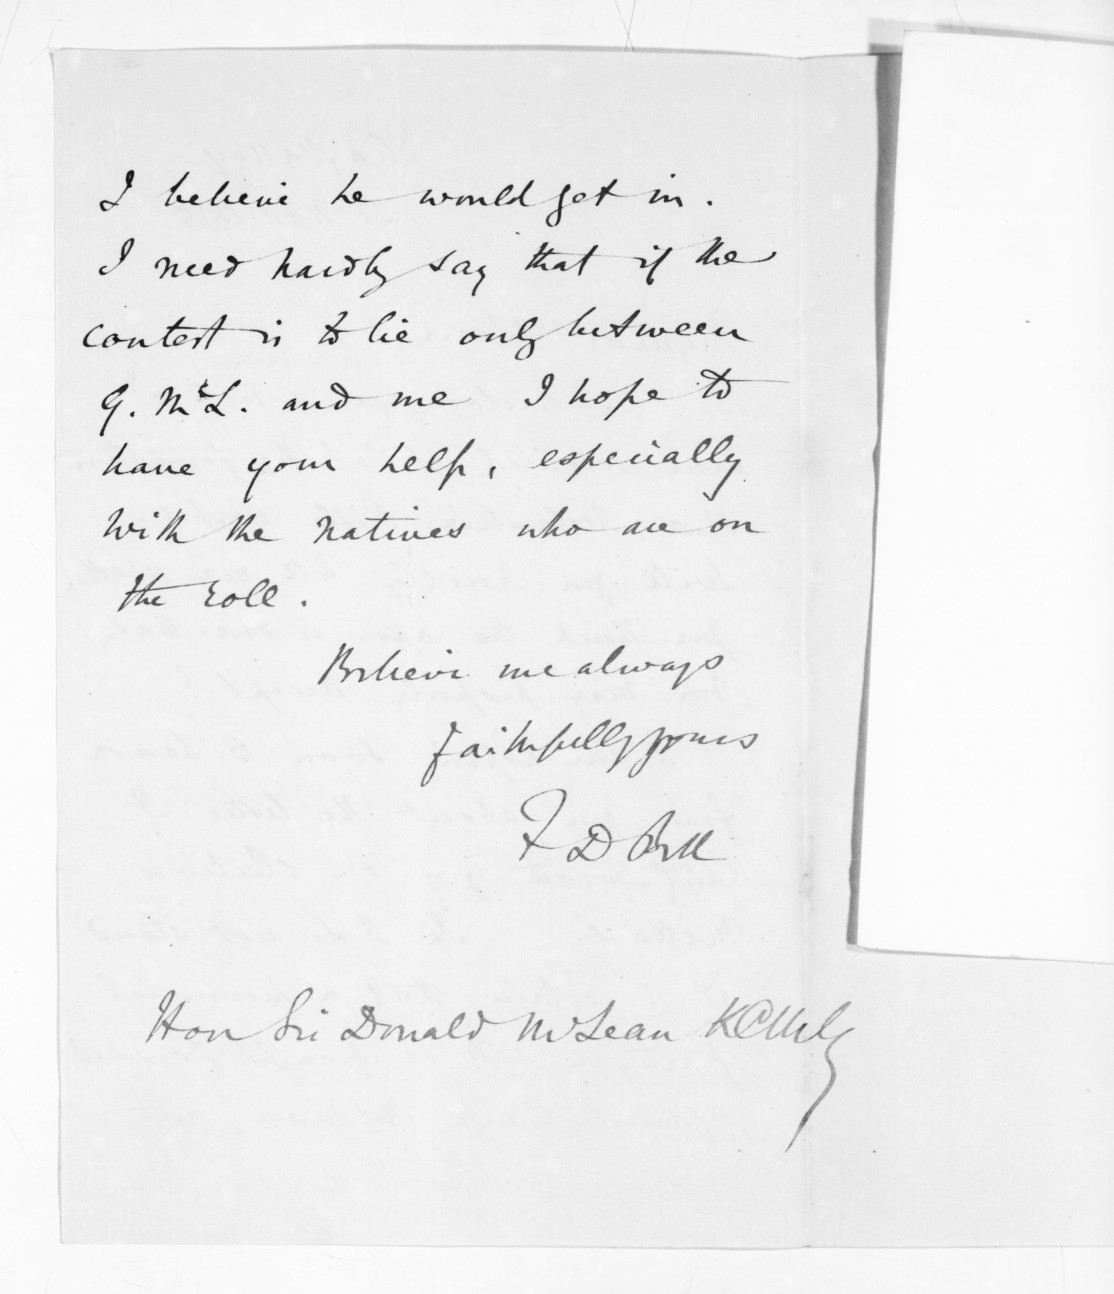 I believe he would get in.
I need hardly say that if the
contest is to lie only between
G. McL. and me I hope to
have your help, especially
with the natives who are on
the roll.
Believe me always
faithfully yours
F D Bell
Hon Sir Donald McLean KCMG